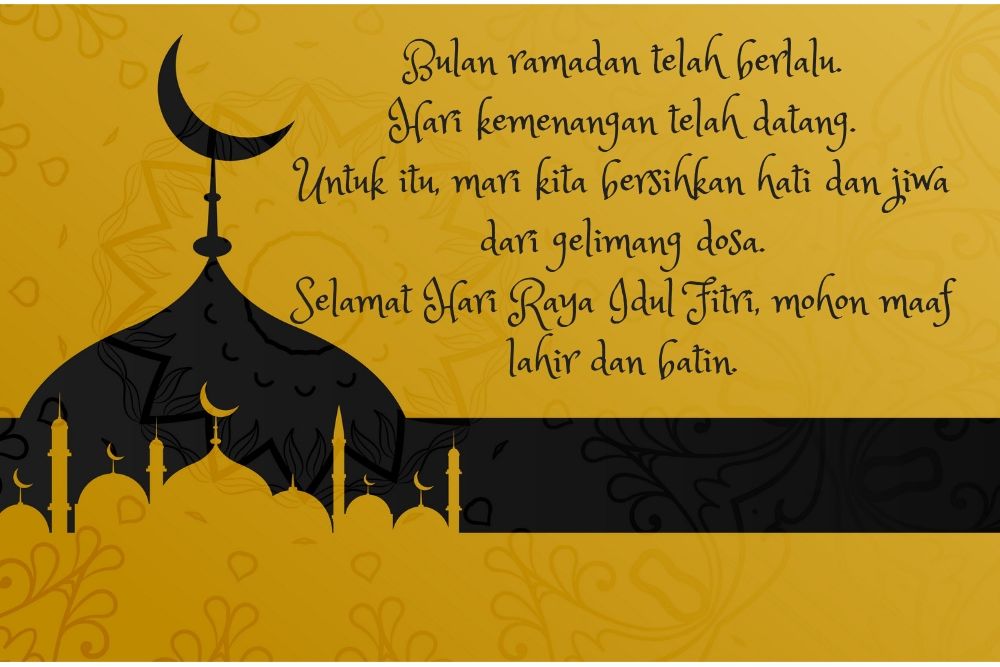 Bulan ramadan telah berlalu.
Hari kemenangan telah datang.
Untuk itu, mari kita bersihkan hati dan jiwa
dari gelimang dosa.
Selamat Hari Raya Idul Fitri, mohon maaf
lahir dan batin.